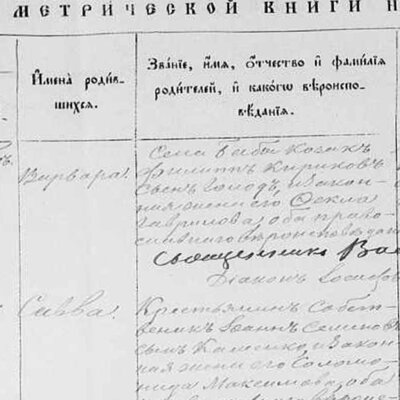 МЕТРИЧЕСКОЙ КНИГИ
Имена родив-
шихся.
Званіе, имя, отчество и фамилія
родителей, и какогѡ вѣроиспо-
вѣданія.
Варвара.
Села Бабы Козакъ
Филиппъ Кириковъ
сынъ и закон-
ная жена его Ѳекла
Гаврилова, оба право-
славнаго вѣроисповѣдан
Священникъ Ва
Діаконъ
Савва.
Крестьянинъ Собст-
венникъ Іоаннъ Семенов
сынъ и закон-
ная жена его Соломо-
нида Максимова, оба